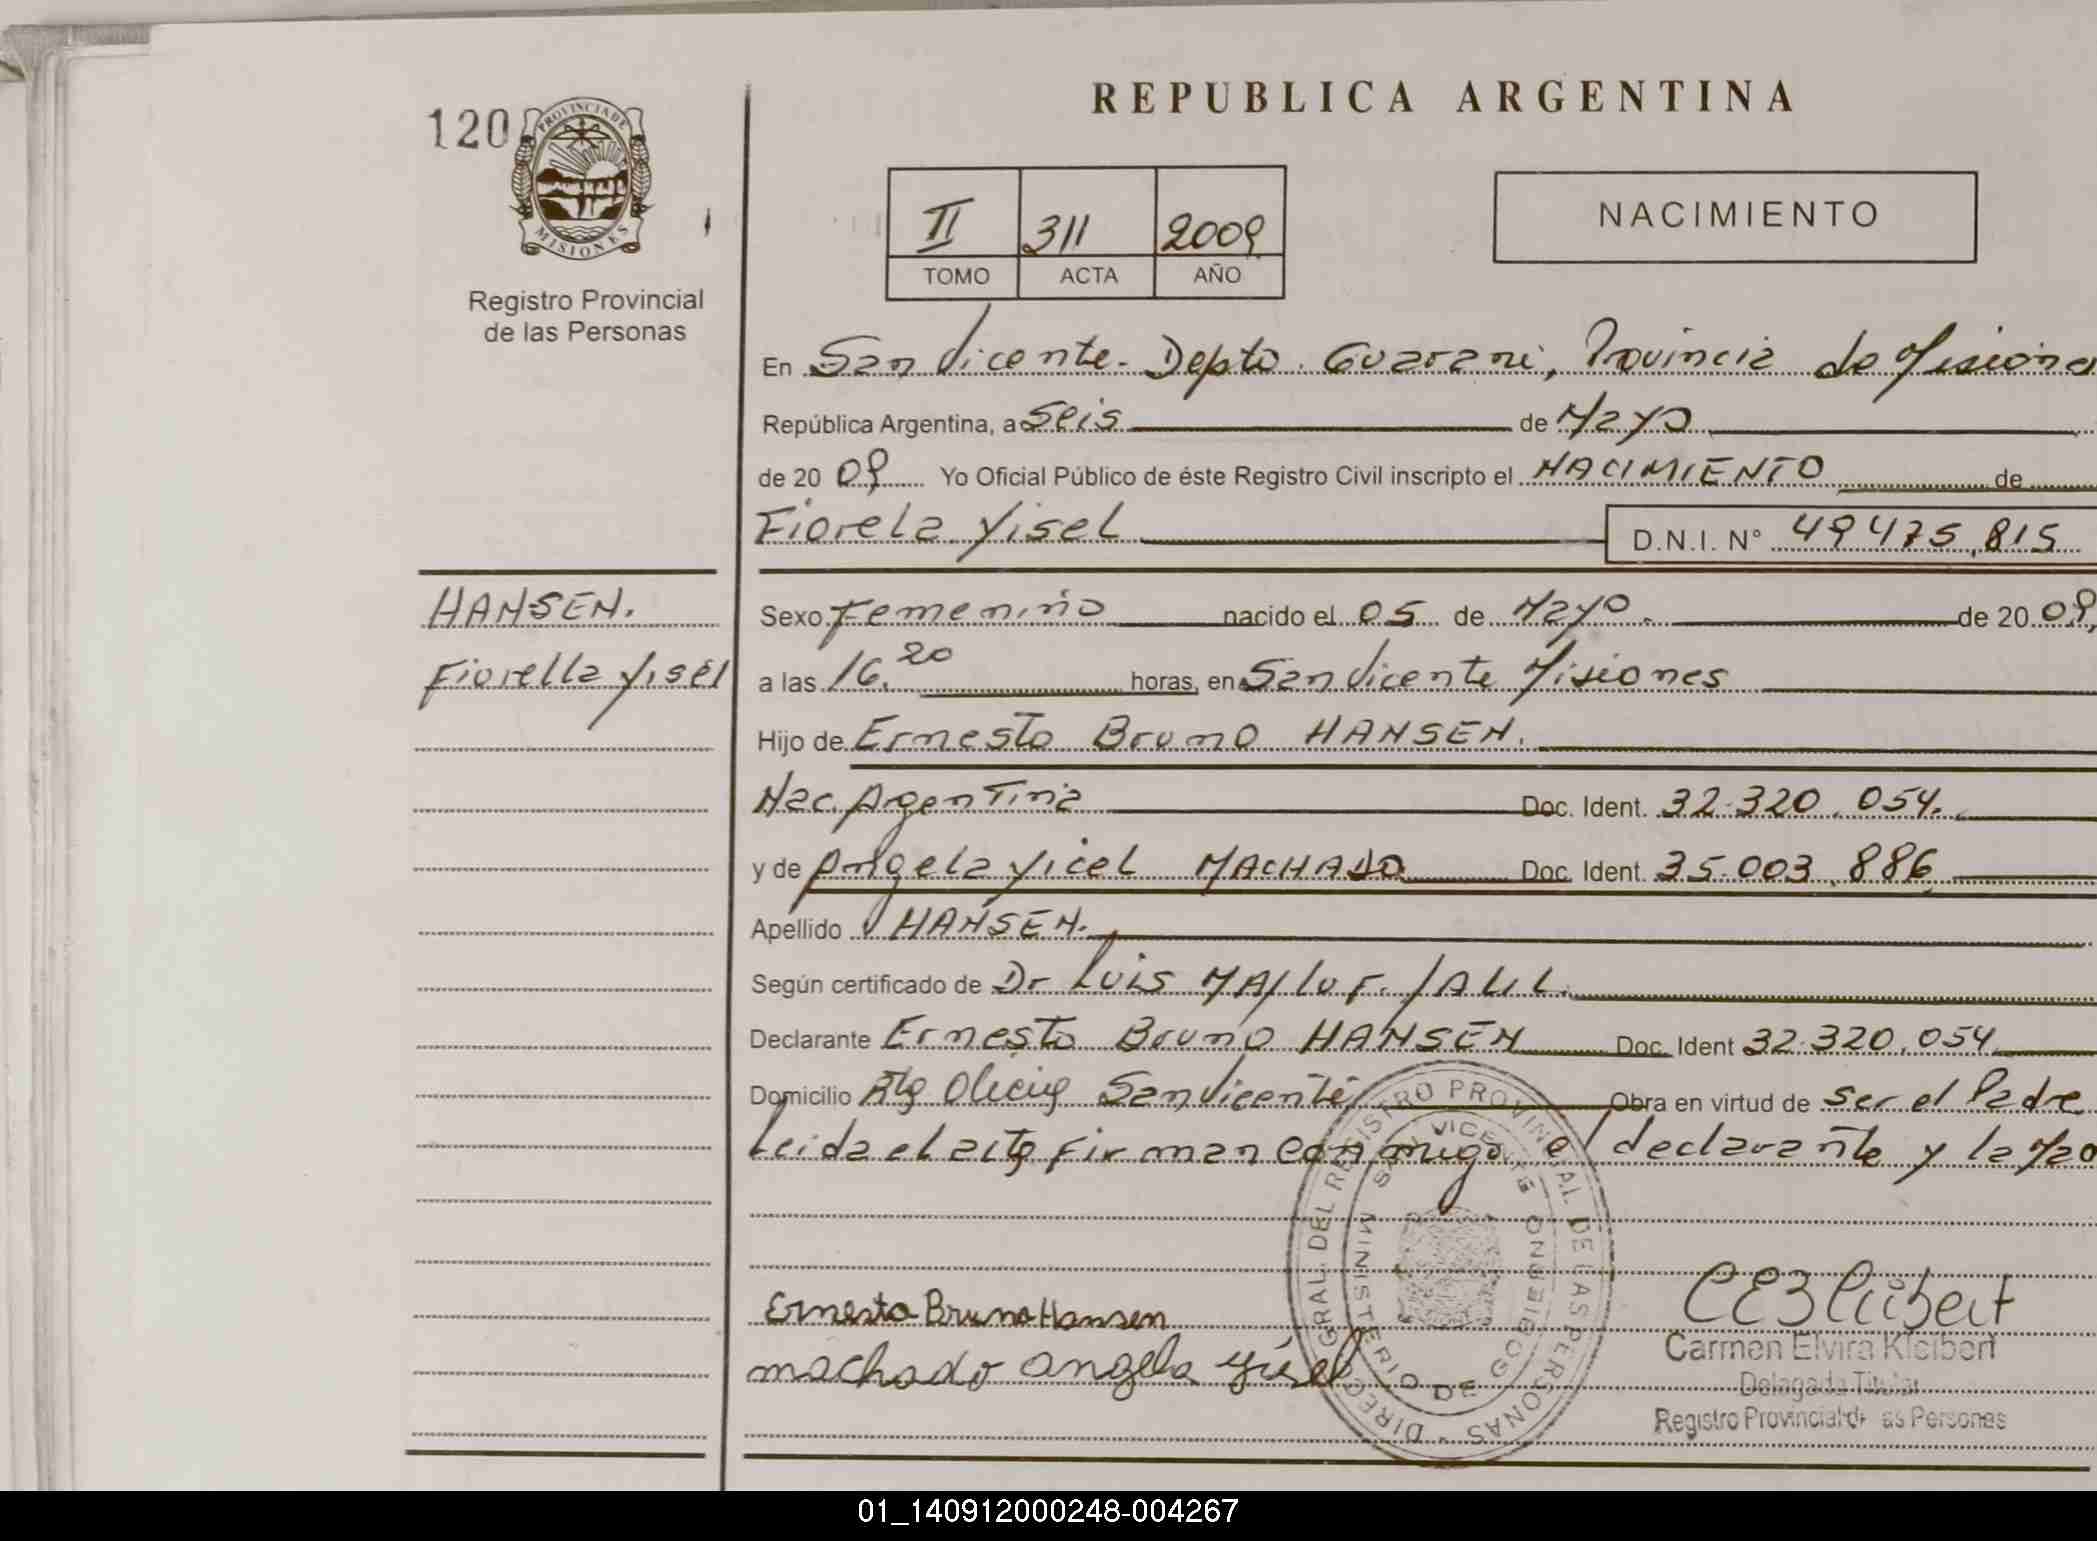 REPUBLICA ARGENTINA
120
PROVINCIA DE
MISIONES
Registro Provincial
de las Personas
II 311 2009
TOMO ACTA AÑO
NACIMIENTO
En San Vicente. Depto. Guarani, Provincia de Misiones
República Argentina, a Seis de Mayo
de 20 09 Yo Oficial Público de éste Registro Civil inscripto el NACIMIENTO de
Fiorela Yisel D.N.I. N° 49475.815
HANSEN.
Fiorella Yisel
Sexo Femenino nacido el 05 de Mayo. de 20 09,
a las 16.20 horas, en San Vicente Misiones
Hijo de Ernesto Bruno HANSEN.
Nac. Argentina Doc. Ident. 32.320.054.
y de Angela Yicel MACHADO Doc. Ident. 35.003.886
Apellido HANSEN.
Según certificado de Dr Luis
Declarante Ernesto Bruno HANSEN Doc. Ident 32.320.054
Domicilio San Vicente Obra en virtud de ser el Padre
Leida el acta firman conmigo el declarante y la
DIREC. GRAL. DEL REGISTRO PROVINCIAL DE LAS PERSONAS
SAN VICENTE
MINISTERIO DE GOBIERNO
Ernesto Bruno Hansen
machado angela yisel
Carmen Elvira Kleibert
Delegada Titular
Registro Provincial de las Personas
01_140912000248-004267